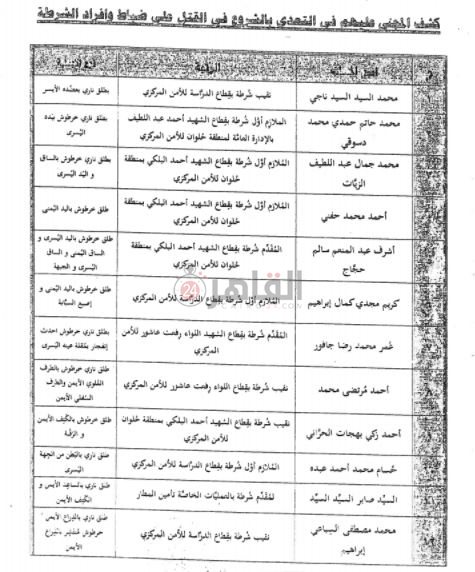 كشف المجنى عليهم في التعدي بالشروع في القتل على ضباط وأفراد الشرطة
محمد السيد السيد ناجي
نقيب شرطة بقطاع الدراسة للأمن المركزي
بطلق ناري بعضده الأيسر
محمد حاتم حمدي محمد
دسوقي
الملازم أول شرطة بقطاع الشهيد أحمد عبد اللطيف
بالإدارة العامة لمنطقة حلوان للأمن المركزي
بطلق ناري خرطوش بيده
اليسرى
محمد جمال عبد اللطيف
الزيات
الملازم أول شرطة بقطاع الشهيد أحمد البلكي بمنطقة
حلوان للأمن المركزي
طلق ناري خرطوش بالساق
و اليد اليسرى
أحمد محمد حفني
الملازم أول شرطة بقطاع الشهيد أحمد البلكي بمنطقة
حلوان للأمن المركزي
طلق خرطوش باليد اليمنى
أشرف عبد المنعم سالم
حجاج
المقدم شرطة بقطاع الشهيد أحمد البلكي بمنطقة
حلوان للأمن المركزي
طلق خرطوش باليد اليسرى و
الساق اليمنى و الساق
اليسرى و الجبهة
كريم مجدي كمال إبراهيم
الملازم أول شرطة بقطاع الدراسة للأمن المركزي
طلق خرطوش باليد اليمنى و
إصبع السبابة
عمر محمد رضا جافور
المقدم شرطة بقطاع الشهيد اللواء رفعت عاشور للأمن
المركزي
بطلق ناري خرطوش احدث
إنفجار بمقلة عينه اليسرى
أحمد مرتضى محمد
نقيب شرطة بقطاع اللواء رفعت عاشور للأمن المركزي
طلق ناري خرطوش بالطرف
العلوي الأيمن والطرف
السفلي الأيمن
أحمد زكي بهجات الحراني
نقيب شرطة بقطاع الشهيد أحمد البلكي بمنطقة حلوان
للأمن المركزي
طلق خرطوش بالكتف الأيمن
و الرقبة
حسام محمد أحمد عبده
الملازم أول شرطة بقطاع الدراسة للأمن المركزي
طلق ناري بالبطن من الجهة
اليسرى
السيد صابر السيد السيد
المقدم شرطة بالعمليات الخاصة بتأمين المطار
طلق ناري بالساعد الأيمن و
الكتف الأيمن
محمد مصطفى السباعي
إبراهيم
نقيب شرطة بقطاع الدراسة للأمن المركزي
طلق ناري بالذراع الأيمن
خرطوش
الأيمن
القاهرة 24